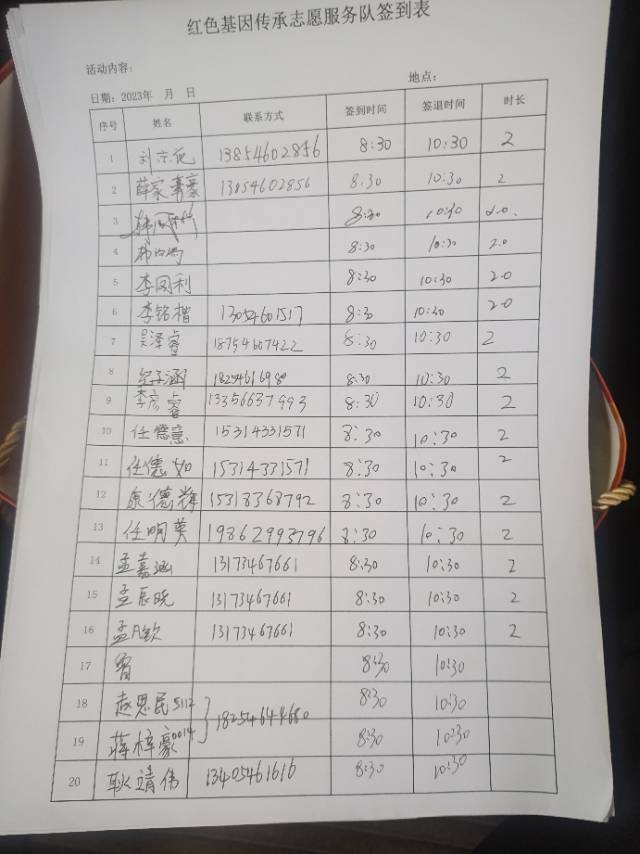 红色基因传承志愿服务队签到表
活动内容：
日期：2023年 月 日 地点：
序号 姓名 联系方式 签到时间 签退时间 时长
1 13854602856 8:30 10:30 2
2 薛家豪 13854602856 8:30 10:30 2
3 8:30 10:30 2.0
4 8:30 10:30 2.0
5 李网利 8:30 10:30 2.0
6 李铭楷 13054601517 8:30 10:30 2.0
7 吴泽睿 18754607422 8:30 10:30 2
8 纪子涵 8:30 10:30 2
9 李彦睿 13356637993 8:30 10:30 2
10 任德意 15314331571 8:30 10:30 2
11 任德如 15314331571 8:30 10:30 2
12 康德辉 15318368792 8:30 10:30 2
13 任明英 19862993796 8:30 10:30 2
14 孟嘉涵 13173467661 8:30 10:30 2
15 孟辰晓 13173467661 8:30 10:30 2
16 孟月钦 13173467661 8:30 10:30 2
17 8:30 10:30
18 赵思民5112 18254644680 8:30 10:30
19 蒋梓豪0014 8:30 10:30
20 耿靖伟 13405461616 8:30 10:30